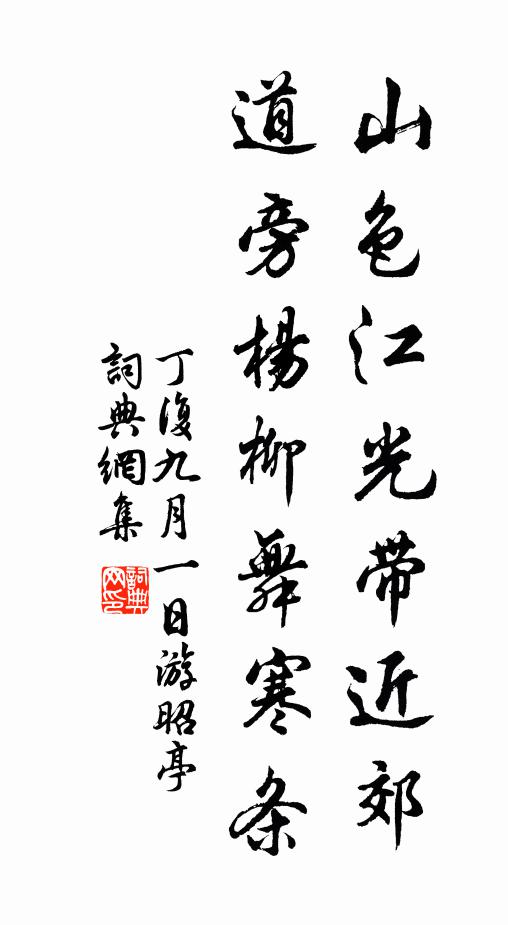 山色江光带近郊
道旁楊柳舞寒条
丁復九月一日游昭亭
詞典網集
詞典
网印